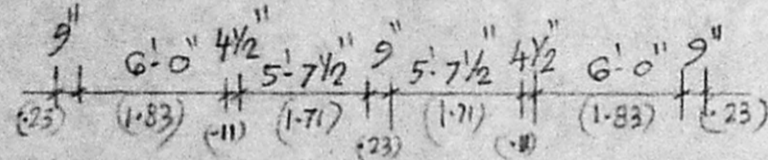 9" 6'-0" 4½" 5'-7½" 9" 5'-7½" 4½" 6'-0" 9"
(.23) (1.83) (.11) (1.71) (.23) (1.71) (.11) (1.83) (.23)